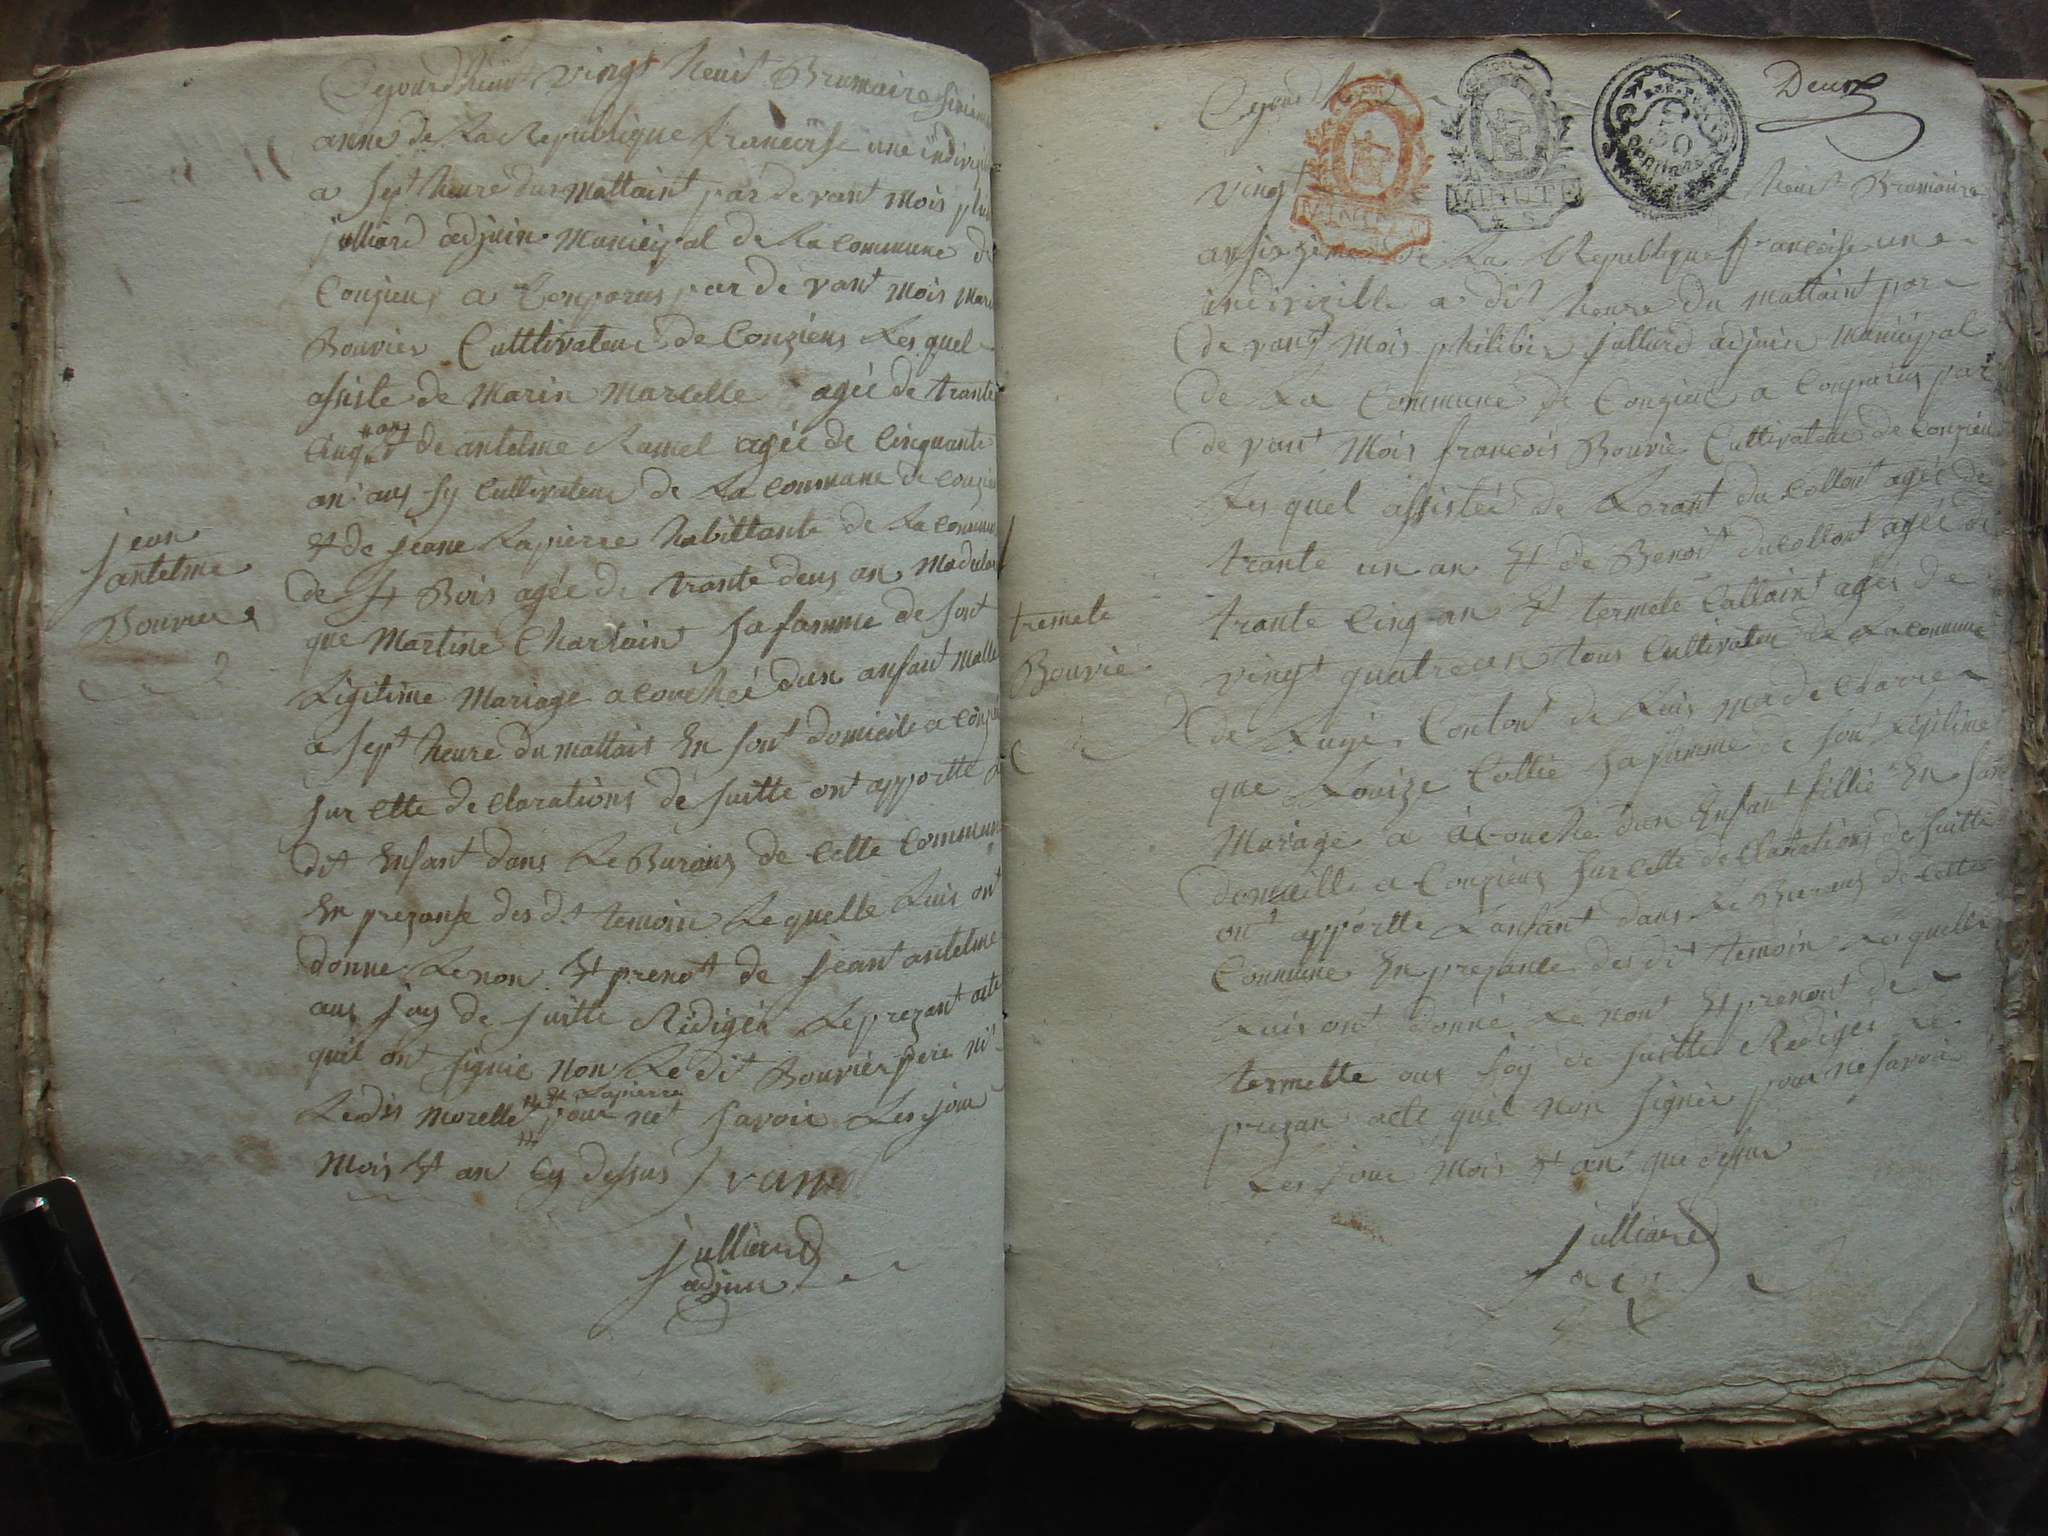 Cejourdhuit vingt heuit Brumaire sizieme
anne de La Republique francoise une indivizi
a sept heure du Mattaint par de vant Mois phi
julliard adjuin Manicipal de La commune de
Conzieux a Conparus par de vant Mois Marc
Bouvier Culttivateur de Conziens Les quel
assiste de Marin Marcelle agée de trante
Cinq ans & de antelme Ramel agée de Cinquante
an ans sy Cultivateur de La commune de conzi
& de jeane Lapierre habittante de La commune
de St Bois agée de trante deus an Madeclare
que Martine Charlain sa famme de sont
Ligitime Mariage a couchéé dun anfant Malle
a sept heure du mattais En sont domicile a Conzi
sur Cette de Clarations de suitte ont apportte Le
dit Enfant dans Le Buraus de Cette Commune
En prezanse des dt temoin Le quelle Luis ont
donne Le non Et prenot de jeant antelme
aus foy de suitte Rédigéé Le prezant acte
quil ont signie non Le dit Bouvier pere ni
& Lapierre
Ledis Morelle pour net savoir Les jour
Mois Et an Cy dessus Ramel
julliard
adjuin
jean
antelme
Bouvier
Deux
Cejourdhuit
MINUTE
MINUTE
50
vingt heuit Brumaire
an sizieme de La Republique francoise une
indivizille a dit heure du Mattaint par
de vant Mois philibir julliard adjuin Manicipal
de La Commune de Conzieu a Conparus par
de vant Mois francois Bouvié Culttivateur de Conzieu
Les quel assistéé de Lorant du Collont agée de
trante un an Et de Benoit ducollont agée de
trante Cinq an Et termete Callaint agés de
vingt quatre an tous Culttivateur de La commune
de Lugé Contont de Luis Madeclaree
que Louize Collié sa famme de son Legitime
Mariage a acouche dun Enfant fillie En son
domicille a Conzieus sur Cette declarations de suitte
ont apportte Lanfant dans Le Buraus de Cette
Commune En prezance des dit temoin Les quelle
Luis ont donné Le nont Et prenont de
termette aus foy de suitte Rediges Le
prezan acte quil non signée pour ne savoir
Les jour Mois Et ant que dessus
julliard
tremete
Bouvié